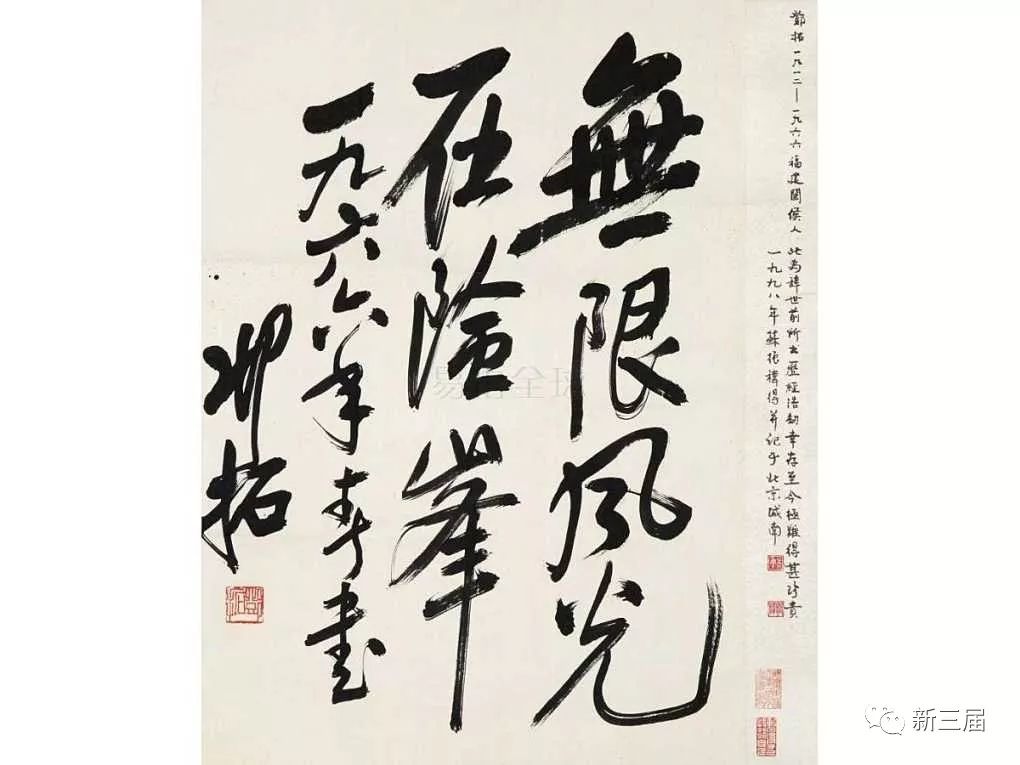 無限風光
在險峯
一九六六年春書
鄧拓
鄧拓一九一二—一九六六福建閩侯人 此為辭世前所书歷經浩劫幸存至今極難得甚珍貴
一九九八年蘇振禕得并記于北京城南
新三届